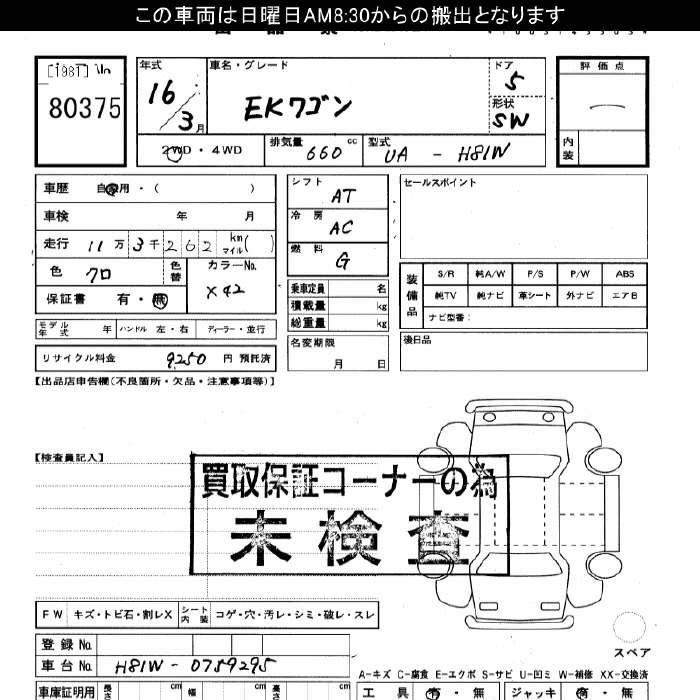 この車両は日曜日AM8:30からの搬出となります
[1987] Vln
80375
年式 車名・グレード ドア 評価点
16/3月 EKワゴン 5
形状
SW
2WD・4WD 排気量 660 cc 型式 UA - H81W 内装
車歴 自家用・( )
車検 年 月
走行 11万3千262 km マイル( )
色 クロ 色替 カラーNo. X42
保証書 有・無
モデル年式 年 ハンドル 左・右 ディーラー・並行
リサイクル料金 9250 円 預託済
シフト AT
冷房 AC
燃料 G
乗車定員 名
積載量 kg
総重量 kg
名変期限
月 日
セールスポイント
装備品 S/R 純A/W P/S P/W ABS
純TV 純ナビ 革シート 外ナビ エアB
ナビ型番:
後日品
【出品店申告欄(不良箇所・欠品・注意事項等)】
【検査員記入】
買取保証コーナーの為
未検査
FW キズ・トビ石・割レX シート内装 コゲ・穴・汚レ・シミ・破レ・スレ
スペア
登録No.
車台No. H81W - 0759295
A-キズ C-腐食 E-エクボ S-サビ U-凹ミ W-補修 XX-交換済
車庫証明用 長さ cm 幅 cm 高さ cm 工具 有・無 ジャッキ 有・無